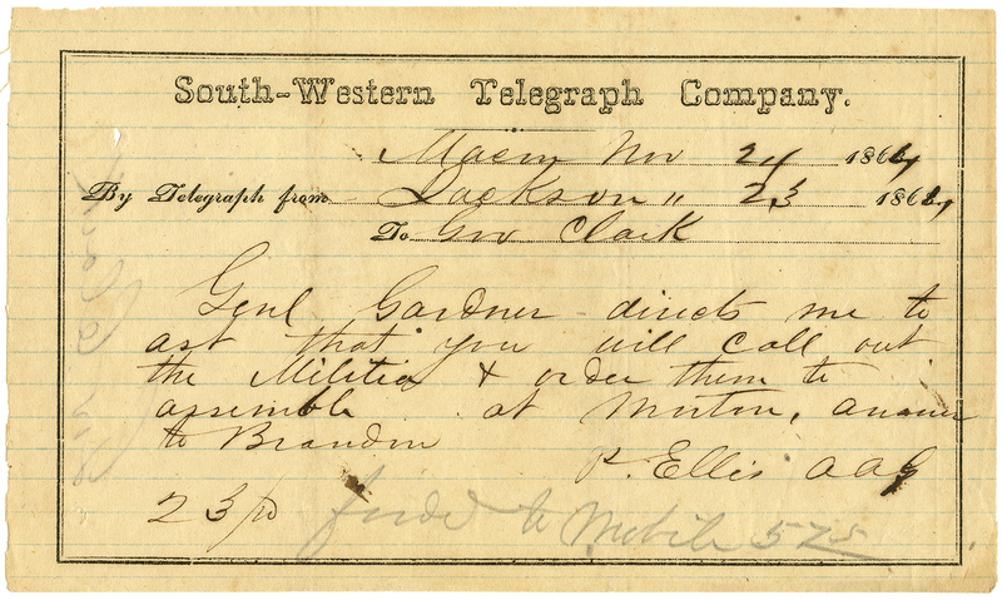 South-Western Telegraph Company.
Macon Nov 24 1864
By Telegraph from Jackson " 23 1864
To Gov Clark
Genl Gardner directs me to
ask that you will call out
the Militia & order them to
assemble at Morton, answer
to Brandon
P. Ellis AAG
23/10
forwd to Mobile 575